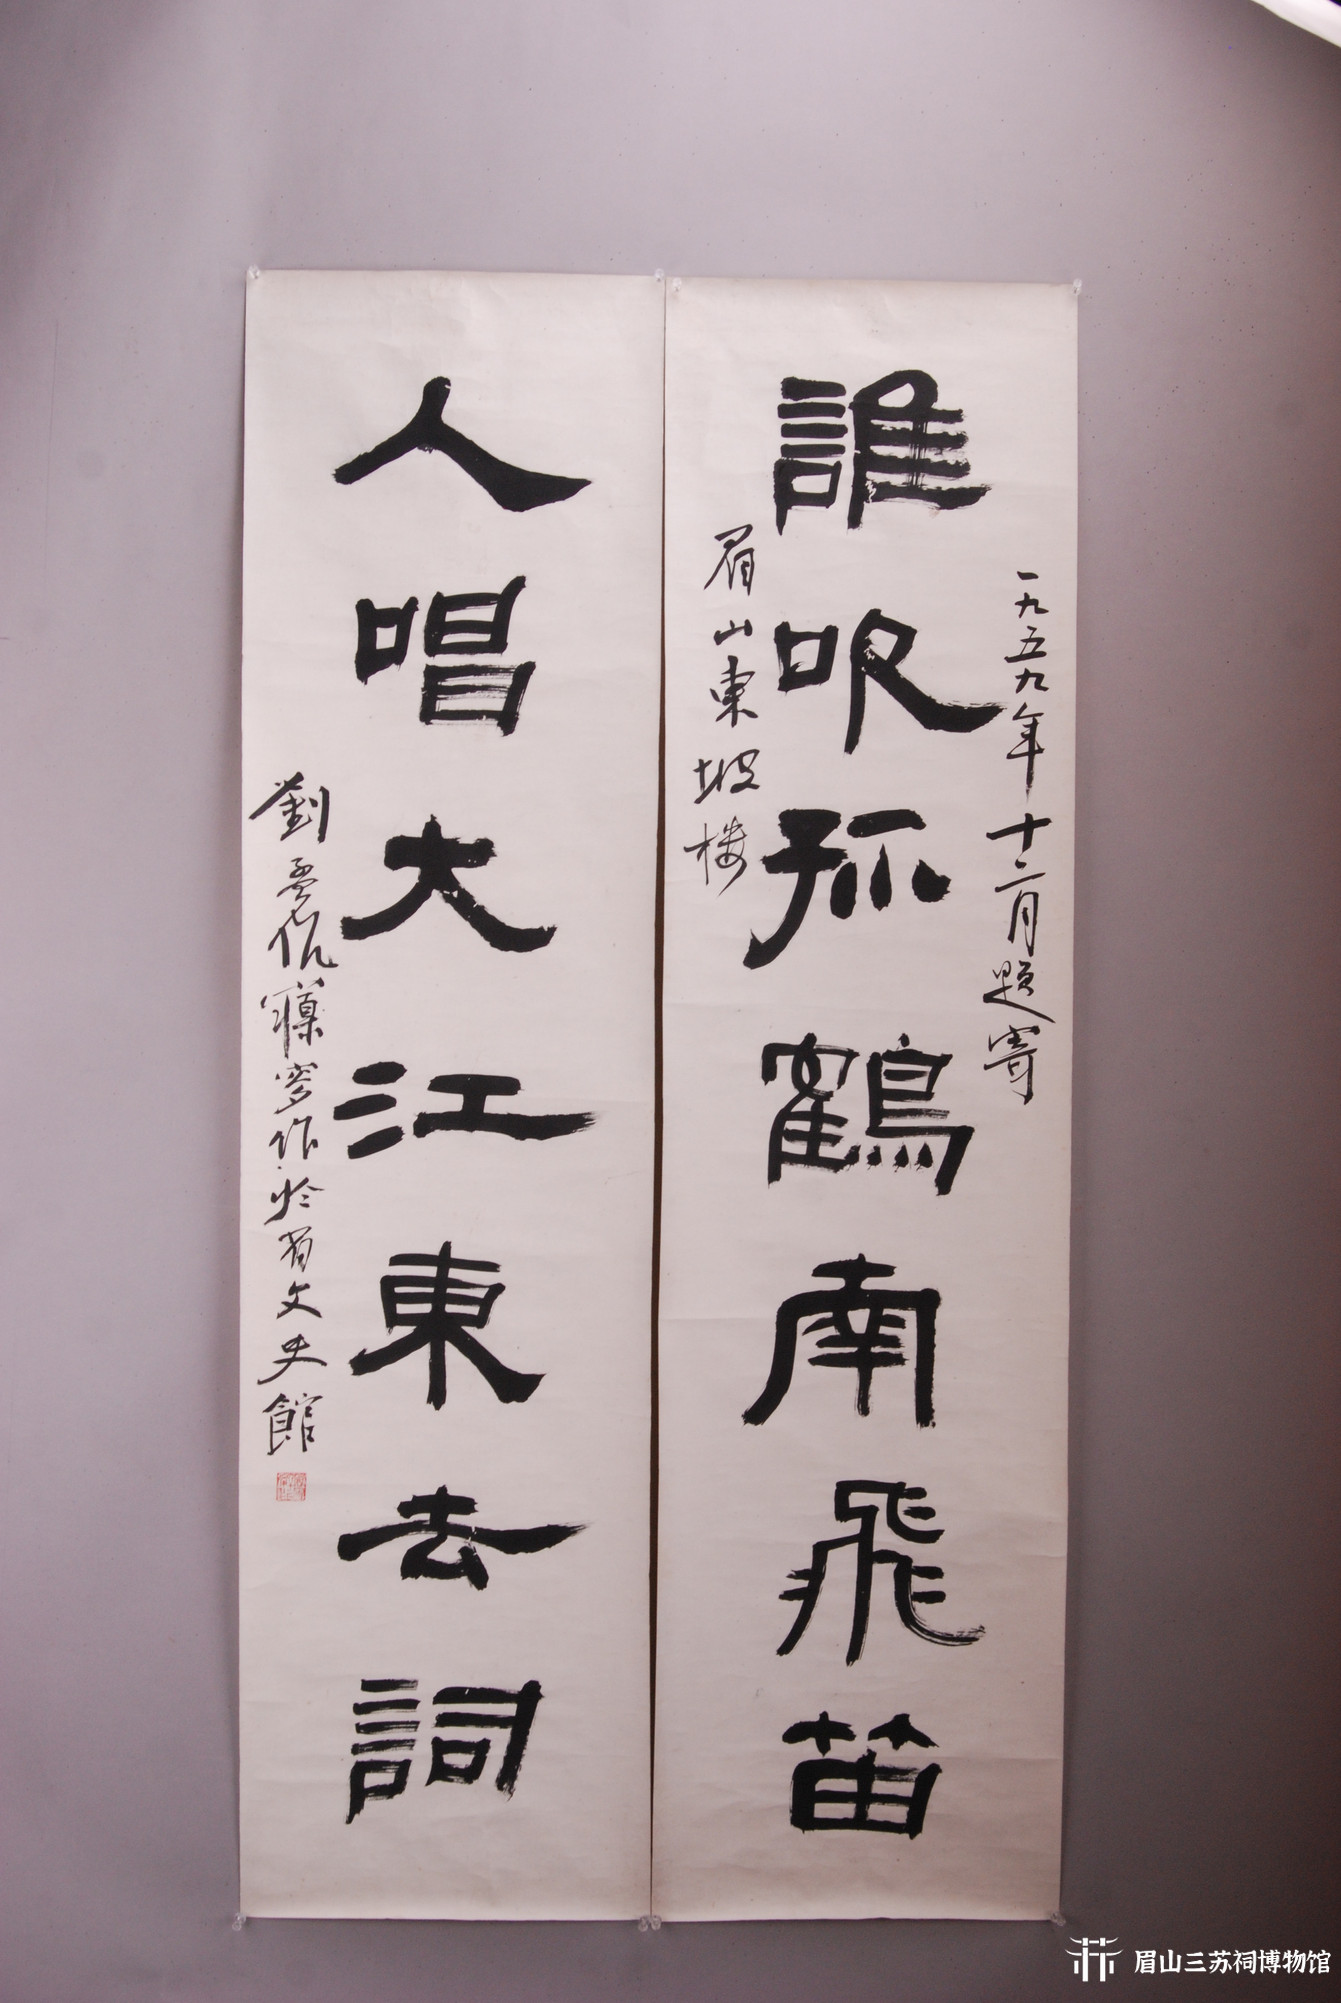 一九五九年十二月題寄
誰吹孤鶴南飛笛
眉山東坡楼
人唱大江東去詞
劉孟伉 作於省文史館
眉山三苏祠博物馆